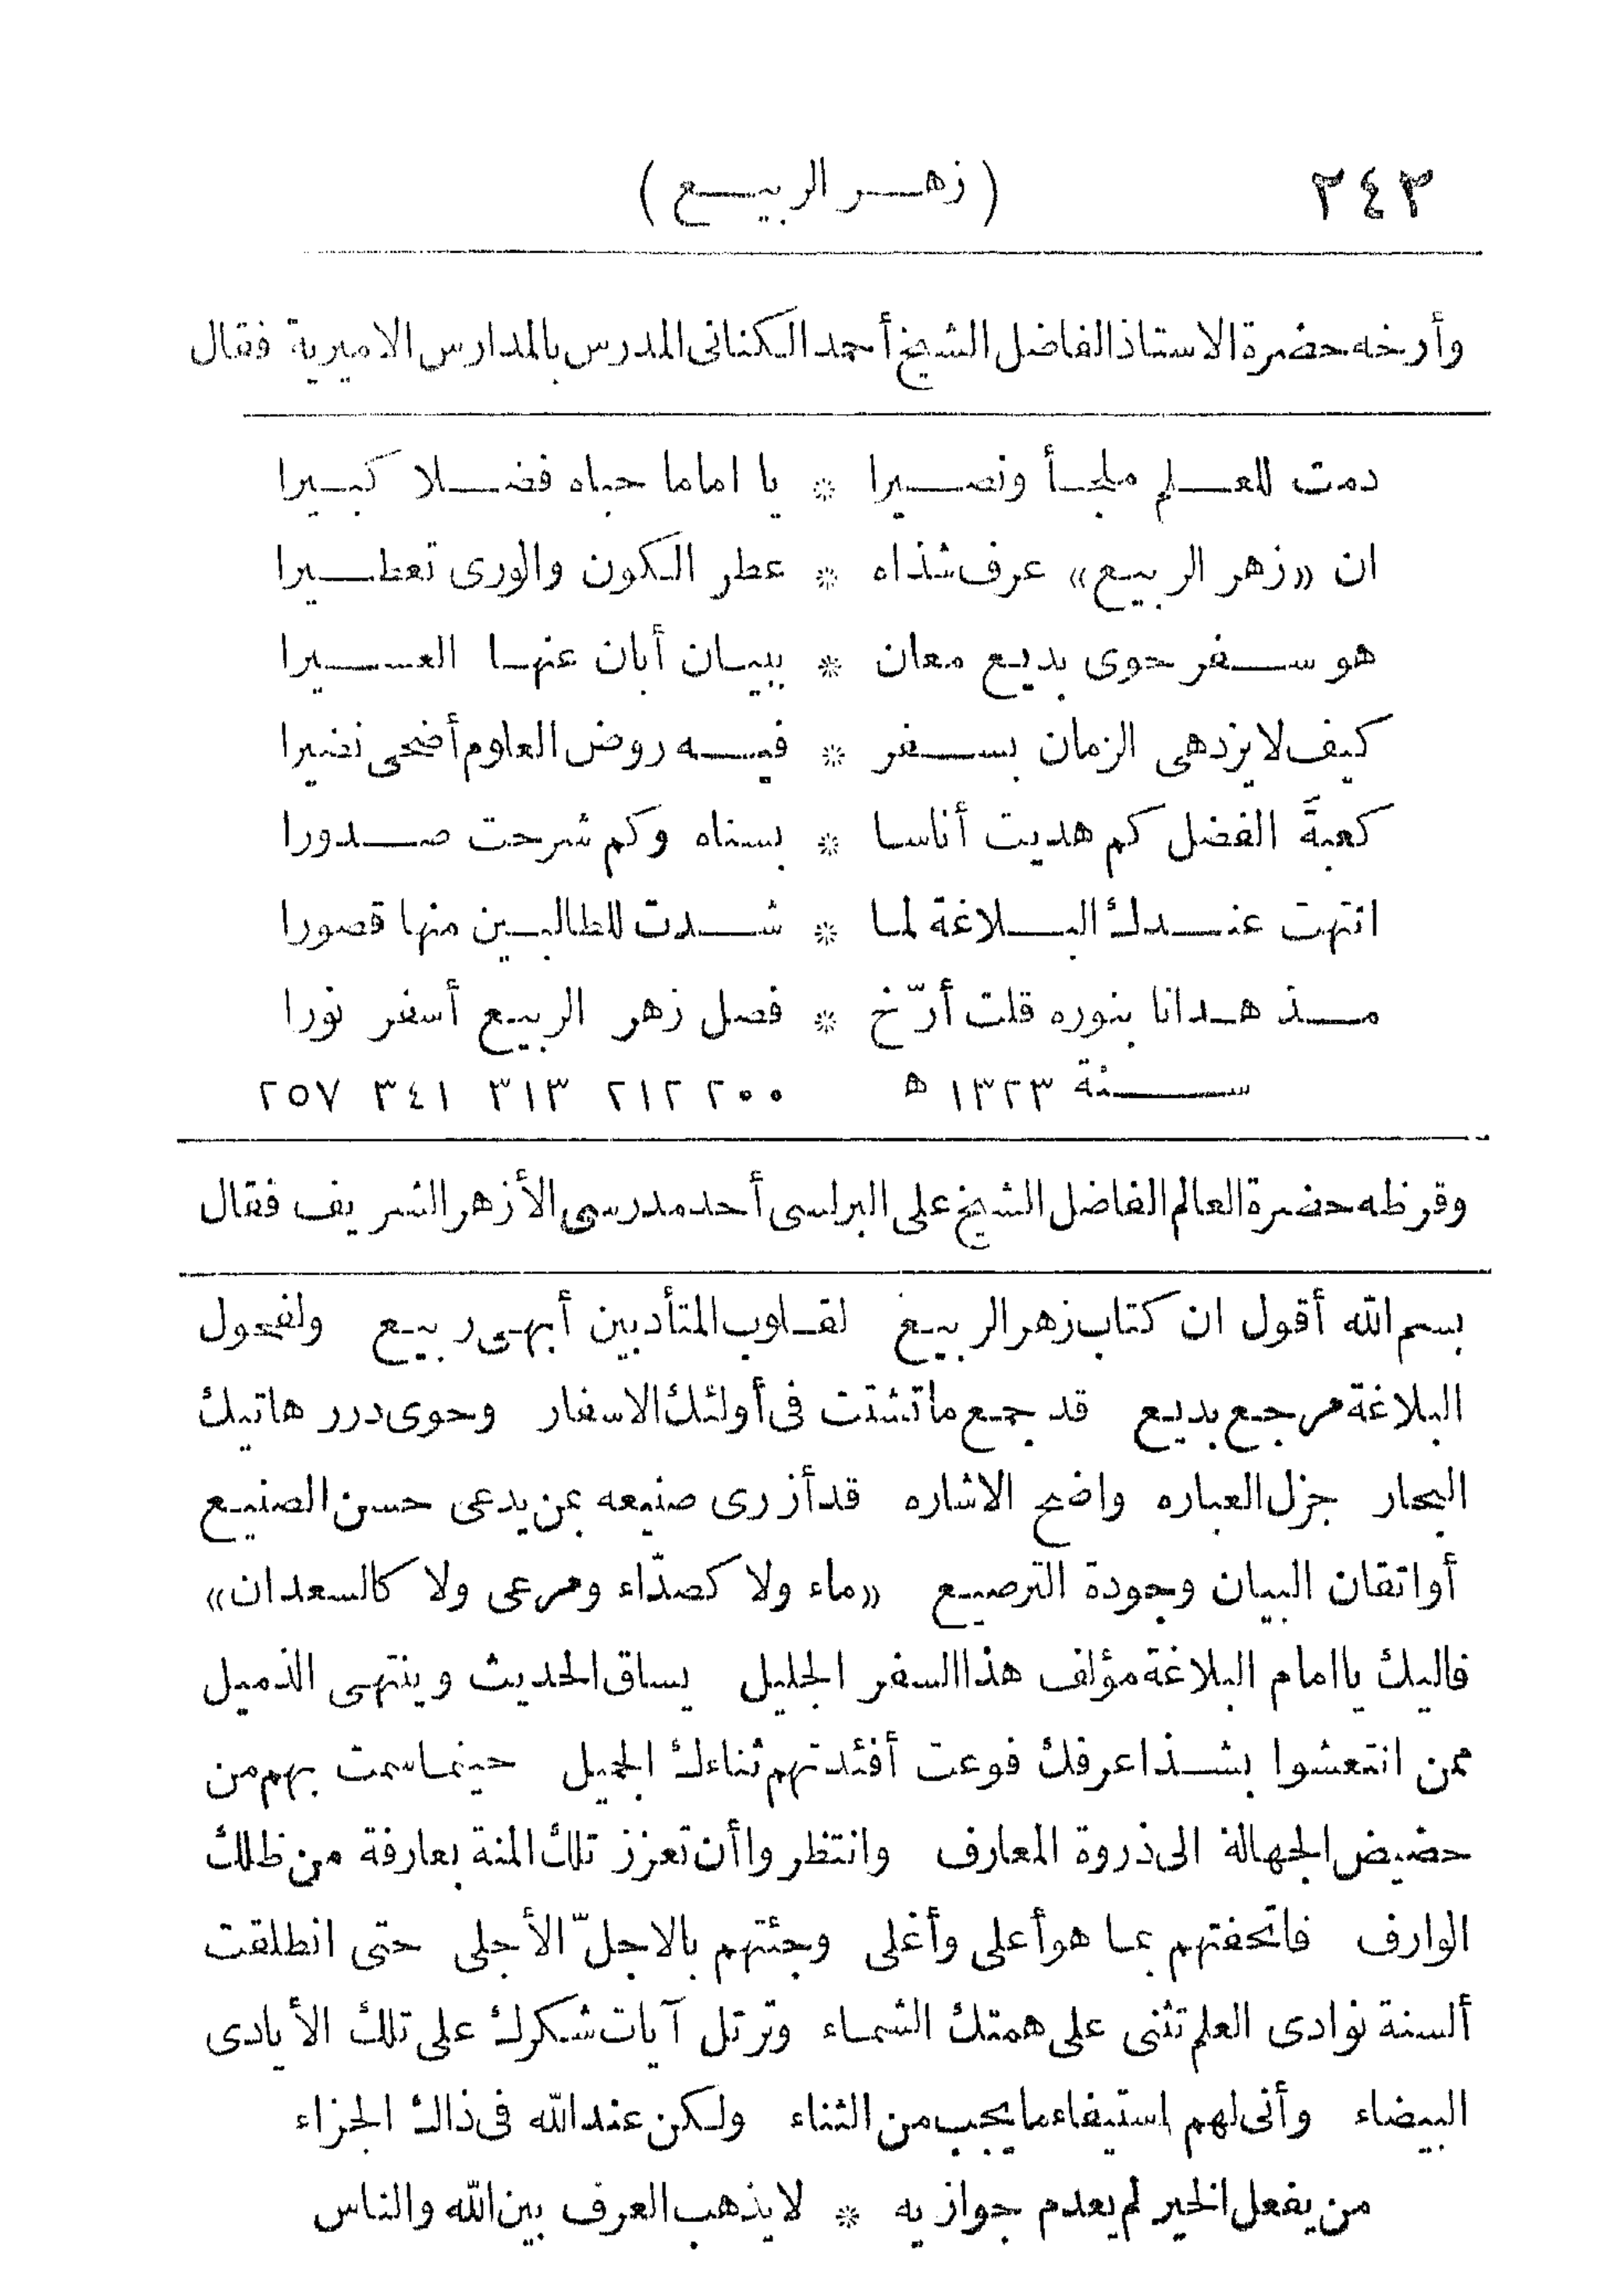 ٢٤٣ (زهر الربيع)
وأرخه حضرة الاستاذ الفاضل الشيخ أحمد الكنانى المدرس بالمدارس الاميرية فقال
دمت للعلم ملجأ ونصيرا * يا اماما حباه فضلا كبيرا
ان «زهر الربيع» عرف شذاه * عطر الكون والورى تعطيرا
هو سفر حوى بديع معان * ببيان أبان عنها العسيرا
كيف لا يزدهى الزمان بسفر * فيه روض العلوم أضحى نضيرا
كعبةَ الفضل كم هديت أناسا * بسناه وكم شرحت صدورا
انتهت عندك البلاغة لما * شدت للطالبين منها قصورا
مذ هدانا بنوره قلت أرّخ * فصل زهر الربيع أسفر نورا
سنة ١٣٢٣ ه ٢٠٠ ٢١٢ ٣١٣ ٣٤١ ٢٥٧
وقرظه حضرة العالم الفاضل الشيخ على البرلسى أحد مدرسى الأزهر الشريف فقال
بسم الله أقول ان كتاب زهر الربيع لقلوب المتأدبين أبهى ربيع ولفحول
البلاغة مرجع بديع قد جمع ما تشتت فى أولئك الاسفار وحوى درر هاتيك
البحار جزل العباره واضح الاشاره قد أزرى صنيعه بمن يدعى حسن الصنيع
أو اتقان البيان وجودة الترصيع «ماء ولا كصدّاء ومرعى ولا كالسعدان»
فاليك يا امام البلاغة مؤلف هذا السفر الجليل يساق الحديث وينتهى الذميل
ممن انتعشوا بشذا عرفك فوعت أفئدتهم ثناءك الجميل حينما سمت بهم من
حضيض الجهالة الى ذروة المعارف وانتظروا أن تعزز تلك المنة بعارفة من ظلك
الوارف فاتحفتهم بما هو أعلى وأغلى وجئتهم بالاجلّ الأجلى حتى انطلقت
ألسنة نوادى العلم تثنى على همتك الشماء وترتل آيات شكرك على تلك الأيادى
البيضاء وأنى لهم استيفاء ما يجب من الثناء ولكن عند الله فى ذاك الجزاء
من يفعل الخير لم يعدم جوازيه * لا يذهب العرف بين الله والناس